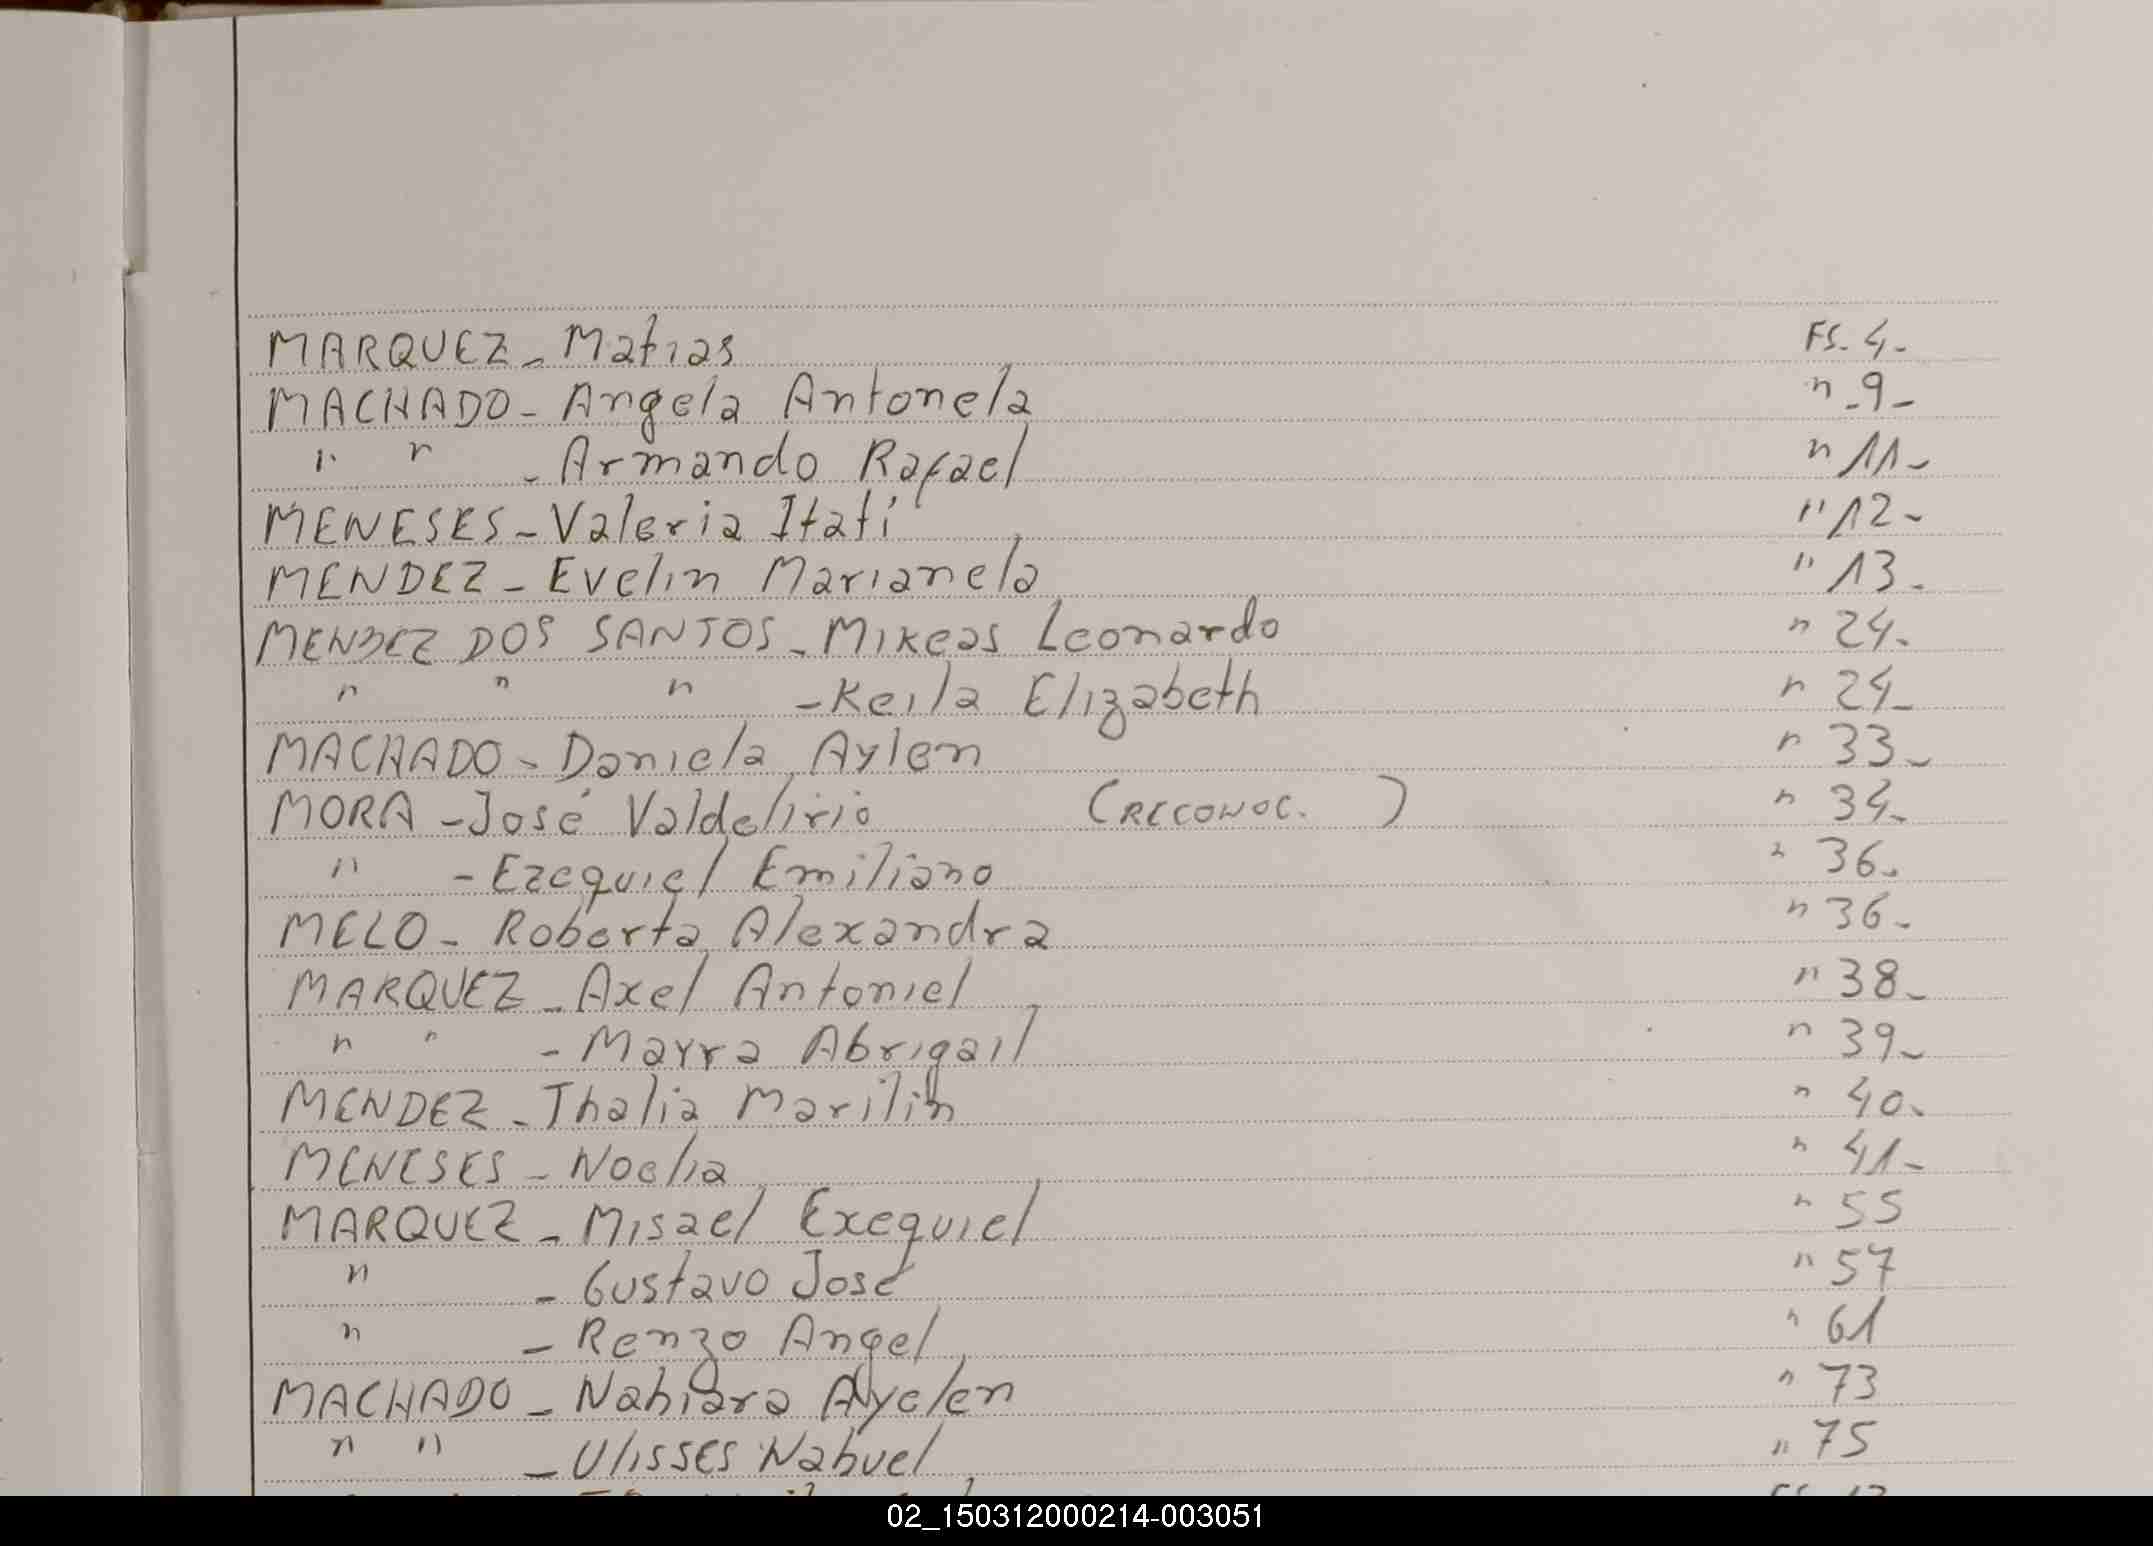 MARQUEZ - Matias FS. 4 -
MACHADO - Angela Antonela " - 9 -
" " - Armando Rafael " 11 -
MENESES - Valeria Itatí " 12 -
MENDEZ - Evelin Marianela " 13 -
MENDEZ DOS SANTOS - Mikeas Leonardo " 24 -
" " " - Keila Elizabeth " 24 -
MACHADO - Daniela Aylen " 33 -
MORA - José Valdelirio (RECONOC. ) " 34 -
" - Ezequiel Emiliano " 36 -
MELO - Roberta Alexandra " 36 -
MARQUEZ - Axel Antoniel " 38 -
" " - Abrigail " 39 -
MENDEZ - Thalia Marilin " 40 -
MENESES - Noelia " 41 -
MARQUEZ - Misael Exequiel " 55
" - Gustavo José " 57
" - Renzo Angel " 61
MACHADO - Nahiara Ayelen " 73
" " - Ulisses Nahuel " 75
02_150312000214-003051